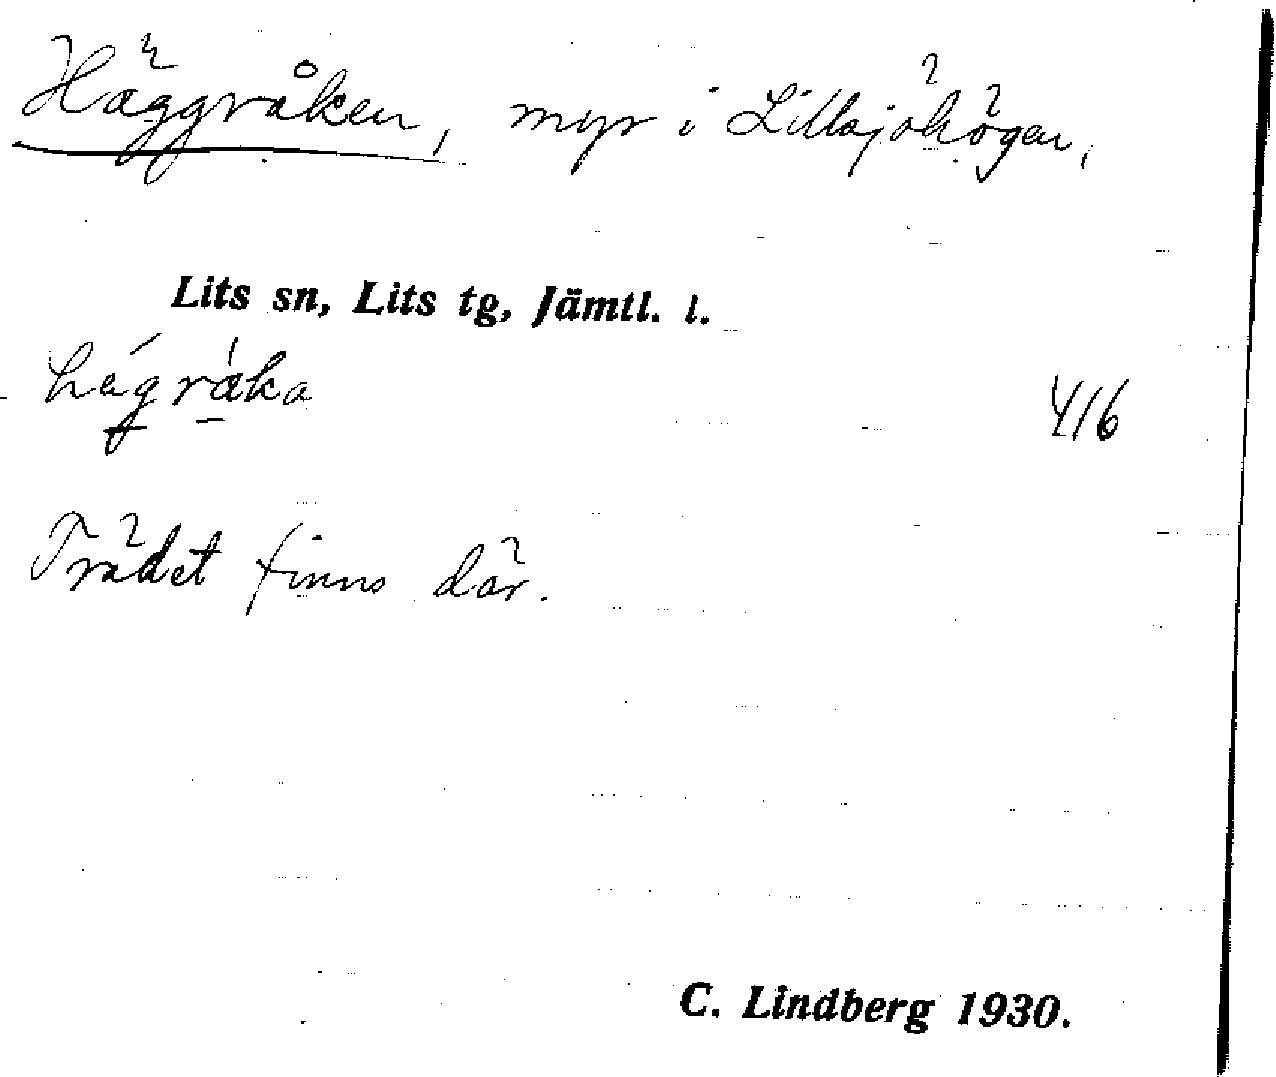 Häggråken, myr i Lillsjöhögen,
Lits sn, Lits tg, Jämtl. l.
hägråka 416
Trädet finns där.
C. Lindberg 1930.